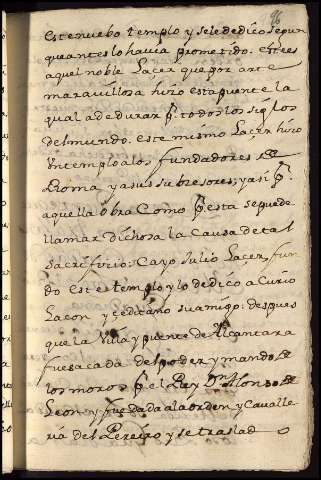 96
este nuebo templo y se le dedico segun
que antes lo havia prometido. este es
aquel noble Lacer que por arte
maravillosa hizo esta puente la
qual a de durar p. todos los siglos
del mundo. este mismo Laçer hizo
Vn templo a los fundadores de
Rroma y a sus subcesores, y asi p.
aquella obra Como p. esta se puede
llamar dichosa la Causa de tal
sacrificio: Cayo Julio Lacer fun
do este templo y lo dedico a Curio
Lacon y
su amigo: despues
que la Villa y puente de Alcantara
fue sacada del poder y mando de
los moros p. el Rey Dn Alonso de
Leon y fue dada a la orden y Cavalle
ria del Pereiro y se traslad